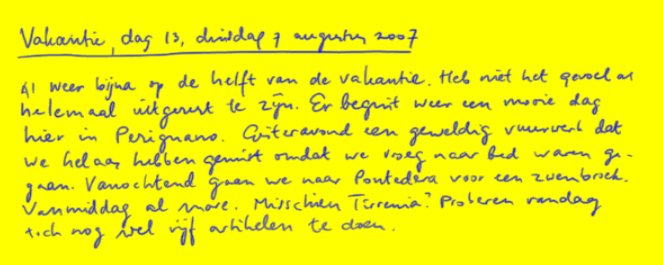 Vakantie, dag 13, dinsdag 7 augustus 2007
Al weer bijna op de helft van de vakantie. Heb niet het gevoel al
helemaal uitgerust te zijn. Er begint weer een mooie dag
hier in Perignano. Gisteravond een geweldig vuurwerk dat
we helaas hebben gemist omdat we vroeg naar bed waren ge-
gaan. Vanochtend gaan we naar Pontedera voor een zwembroek.
Vanmiddag al mare. Misschien Tirrenia? Proberen vandaag
toch nog wel vijf artikelen te doen.